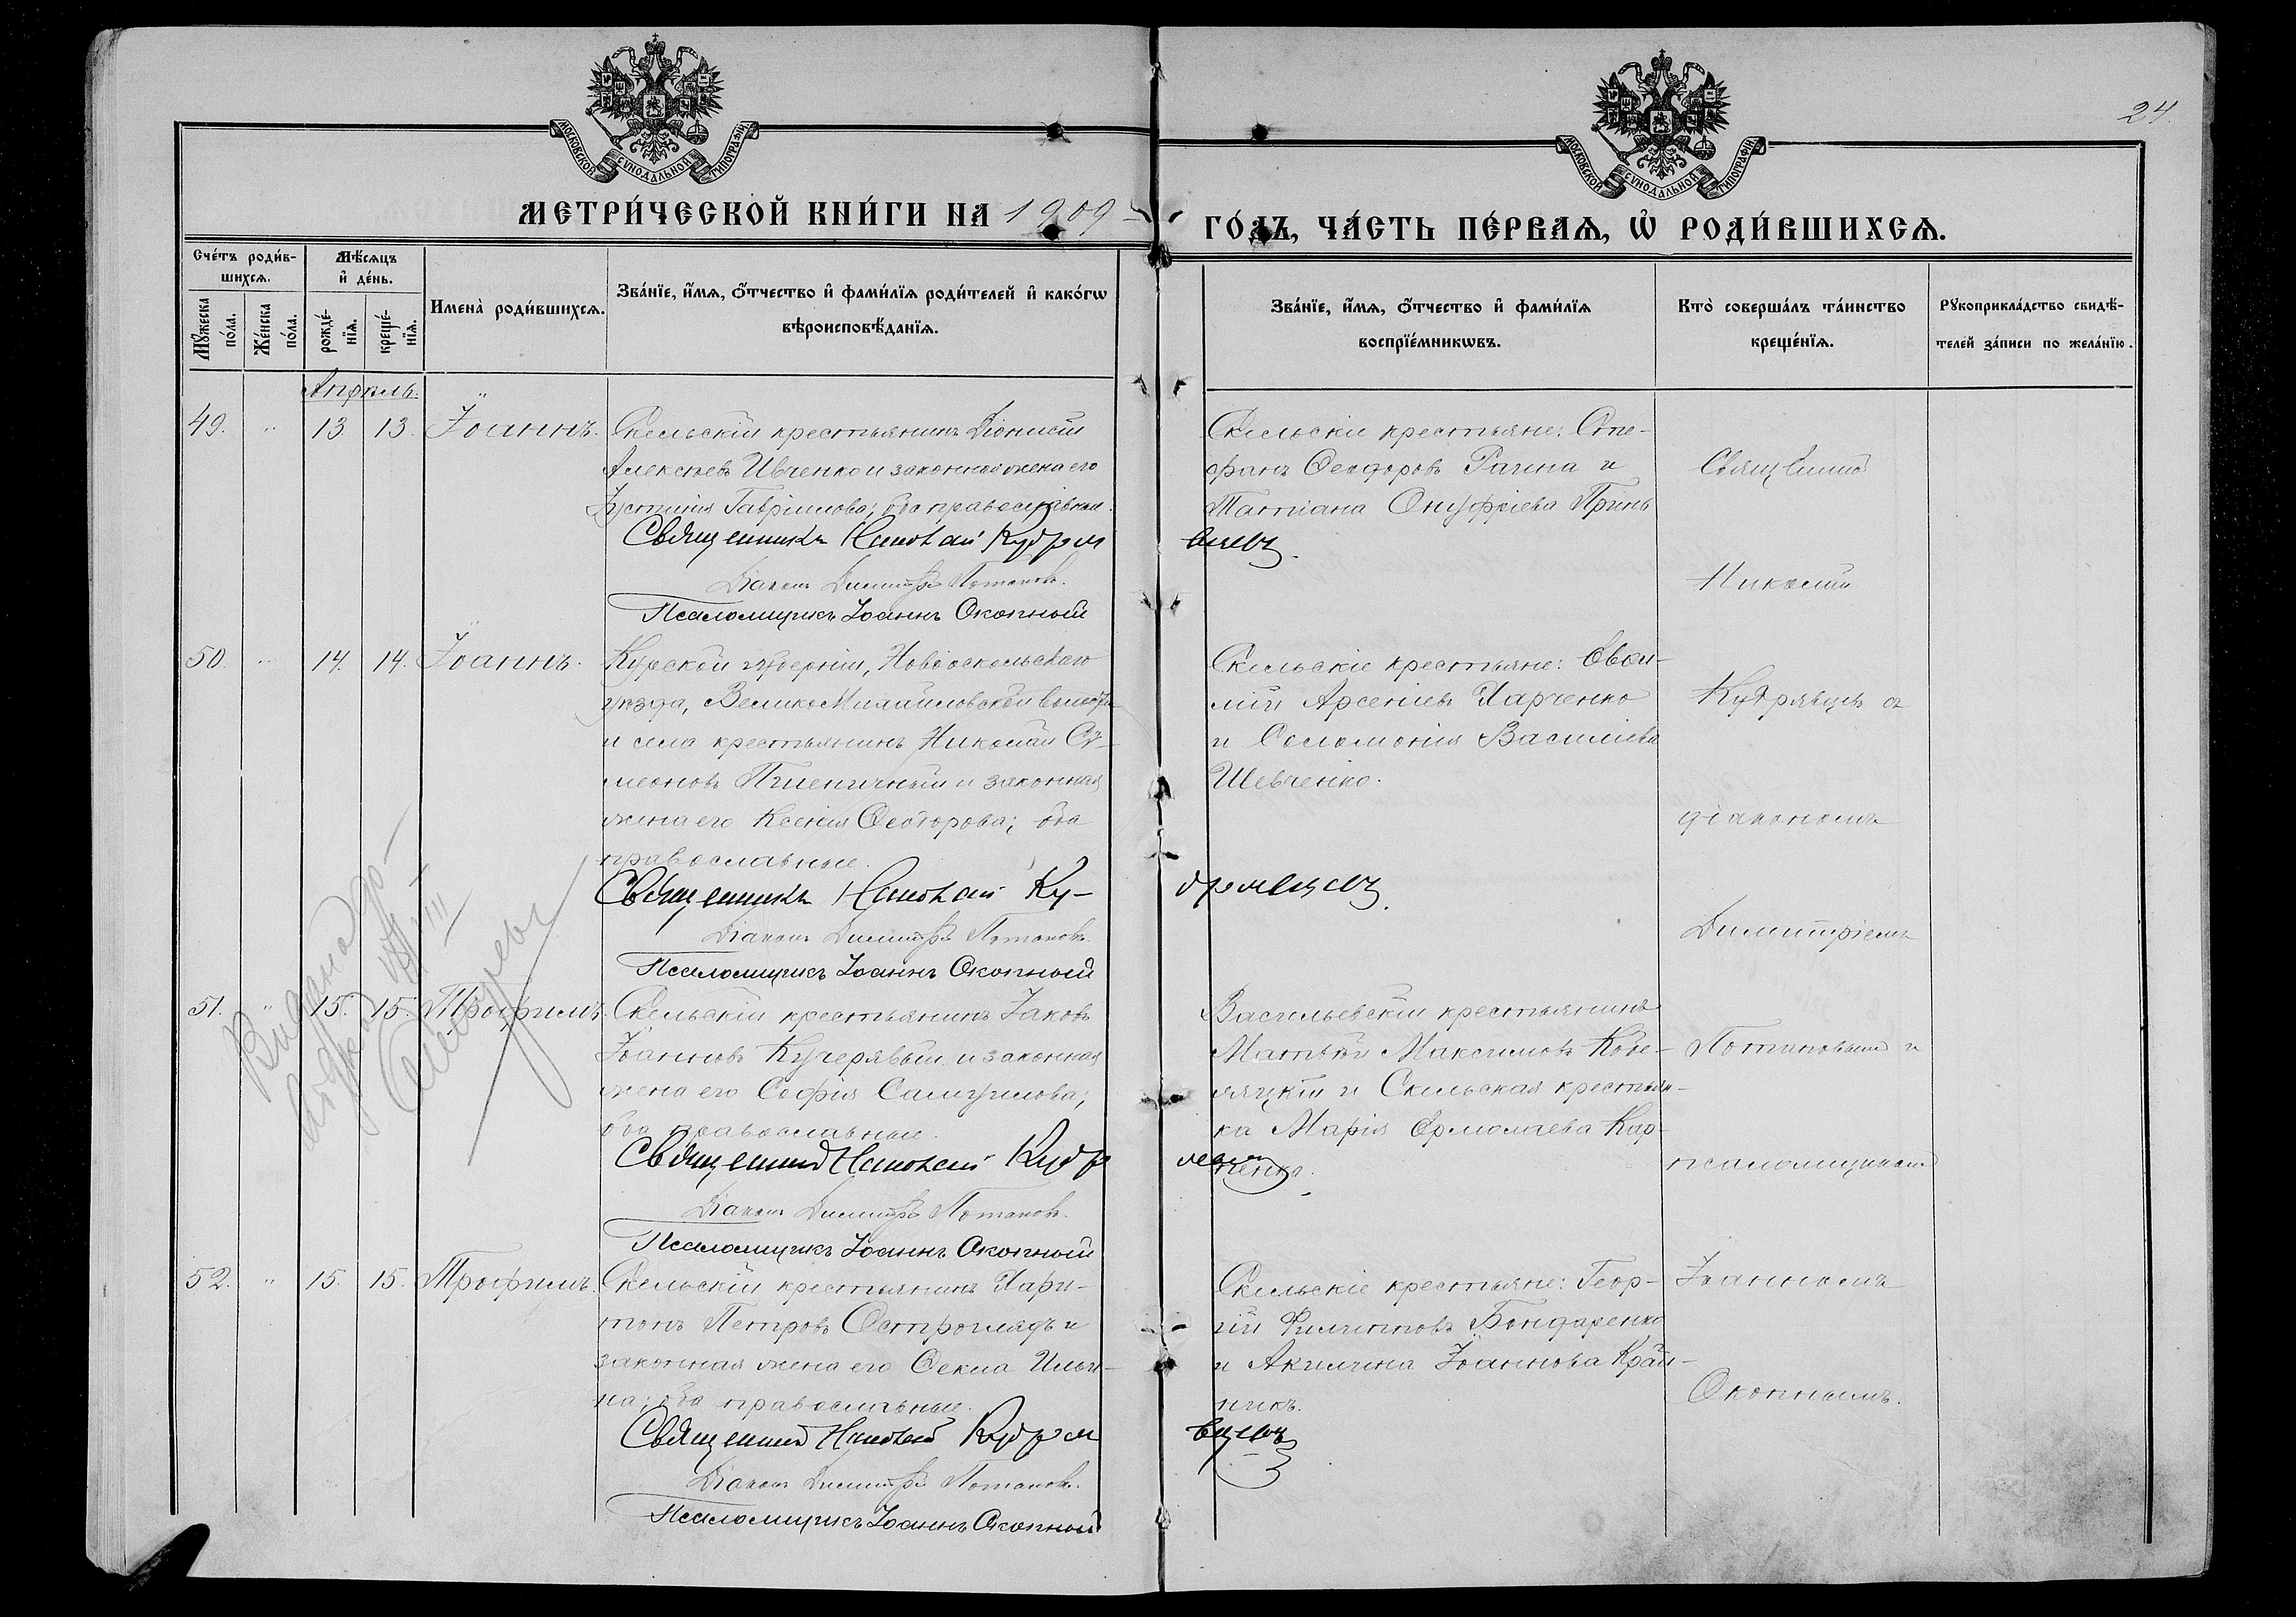 24.
МОСКОВСКОЙ СУНОДАЛЬНОЙ ТИПОГРАФІИ
МОСКОВСКОЙ СУНОДАЛЬНОЙ ТИПОГРАФІИ
МЕТРИ́ЧЕСКОЙ КНИ́ГИ НА 1909
ГО́ДЪ, ЧА́СТЬ ПЕ́РВАѦ, Ѡ҆ РОДИ́ВШИХСѦ.
Сче́тъ роди́в-
шихсѧ.
Мꙋ́жеска по́ла.
Же́нска по́ла.
Мѣ́сѧцъ
и҆ де́нь.
рожде́-
нїѧ.
креще́-
нїѧ.
Имена̀ роди́вшихсѧ.
Зва́нїе, и҆́мѧ, ѻ҆́тчество и҆ фами́лїѧ роди́телей и҆ како́гѡ
вѣроисповѣ́данїѧ.
Зва́нїе, и҆́мѧ, ѻ҆́тчество и҆ фами́лїѧ
воспрїе́мникѡвъ.
Кто̀ соверша́лъ та́инство
креще́нїѧ.
Рꙋкоприкла́дство свидѣ́-
телей за́писи по жела́нїю.
Апрѣль.
49. " 13. 13. Іоаннъ.
Скельскій крестьянинъ Діонисій
Алексѣевъ Ивченко и законная жена его
Іустинія Гавріилова; оба православные.
Священникъ Николай Кудря
вцевъ.
Діаконъ Димитрій Потаповъ.
Псаломщикъ Іоаннъ Окопный
Скельскіе крестьяне: Сте-
фанъ Ѳеодоровъ Рачина и
Татіана Онуфріева Принь
50. " 14. 14. Іоаннъ.
Курской губерніи, Новооскольскаго
уѣзда, ВеликоМихайловской волости
и села крестьянинъ Николай Сѵ-
меоновъ Пшеничный и законная
жена его Ксенія Ѳеодорова; оба
православные.
Священникъ Николай Ку-
дрявцевъ.
Діаконъ Димитрій Потаповъ.
Псаломщикъ Іоаннъ Окопный
Скельскіе крестьяне: Евѳи-
мій Арсеніевъ Харченко
и Соломонія Василіева
Шевченко.
51. " 15. 15. Трофимъ.
Скельскій крестьянинъ Іаковъ
Іоанновъ Кучерявый и законная
жена его Софія Самуилова;
оба православные.
Священникъ Николай Кудр
явцевъ
Діаконъ Димитрій Потаповъ.
Псаломщикъ Іоаннъ Окопный
Васильевскій крестьянинъ
Матѳій Максимовъ Кобе-
ляцкій и Скельская крестьян-
ка Марія Ермолаева Кар-
пенко.
52. " 15. 15. Трофимъ.
Скельскій крестьянинъ Хари-
тонъ Петровъ Остроглядъ и
законная жена его Ѳекла Ильи-
на; оба православные.
Священникъ Николай Кудря
вцевъ
Діаконъ Димитрій Потаповъ.
Псаломщикъ Іоаннъ Окопный
Скельскіе крестьяне: Геор-
гій Филипповъ Бондаренко
и Акилина Іоаннова Край-
никъ.
Священникъ
Николай
Кудрявцевъ съ
діакономъ
Димитріемъ
Потаповымъ и
псаломщикомъ
Іоанномъ
Окопнымъ.